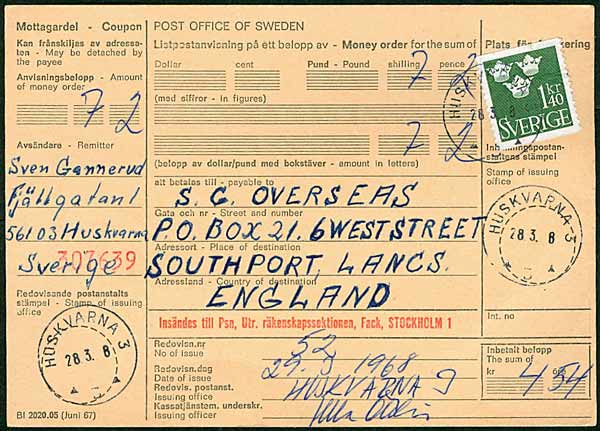 Mottagardel - Coupon
Kan frånskiljas av adressa-
ten - May be detached by
the payee
Anvisningsbelopp - Amount
of money order
7 2
Avsändare - Remitter
Sven Gannerud
Fjällgatan 1
56103 Huskvarna
307639
Sverige
Redovisande postanstalts
stämpel - Stamp of issuing
office
HUSKVARNA 3
28.3.8
BI 2020.05 (Juni 67)
POST OFFICE OF SWEDEN
Listpostanvisning på ett belopp av - Money order for the sum of
Dollar cent Pund - Pound shilling pence
7 2
(med siffror - in figures)
7 2
(belopp av dollar/pund med bokstäver - amount in letters)
att betalas till - payable to
S. G. OVERSEAS
Gata och nr - Street and number
P.O. BOX 21. 6 WEST STREET
Adressort - Place of destination
SOUTHPORT, LANCS.
Adressland - Country of destination
ENGLAND
Insändes till Psn, Utr. räkenskapssektionen, Fack, STOCKHOLM 1
Redovisn.nr
No of issue
52
Redovisn.dag
Date of issue
29. 3 1968
Redovis. postanst.
Issuing office
HUSKVARNA 3
Kassatjänstem. underskr.
Issuing officer
Plats för
HUSK
28.3.8
1 KR
40
SVERIGE
Inbetalningspostan-
staltens stämpel
Stamp of issuing
office
HUSKVARNA 3
28.3.8
Int. no
Inbetalt belopp
The sum of
kr öre
4 54